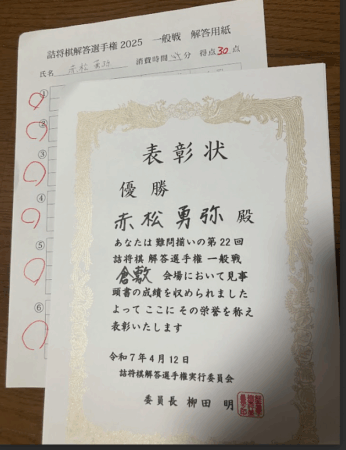 詰将棋解答選手権2025 一般戦 解答用紙
氏名 赤松勇弥 消費時間 分 得点30点
①
②
③
④
⑤
⑥
表彰状
優勝
赤松勇弥 殿
あなたは難問揃いの第22回
詰将棋 解答選手権 一般戦
倉敷 会場において見事
頭書の成績を収められました
よって ここに その栄誉を称え
表彰いたします
令和7年4月12日
詰将棋解答選手権実行委員会
委員長 柳田 明